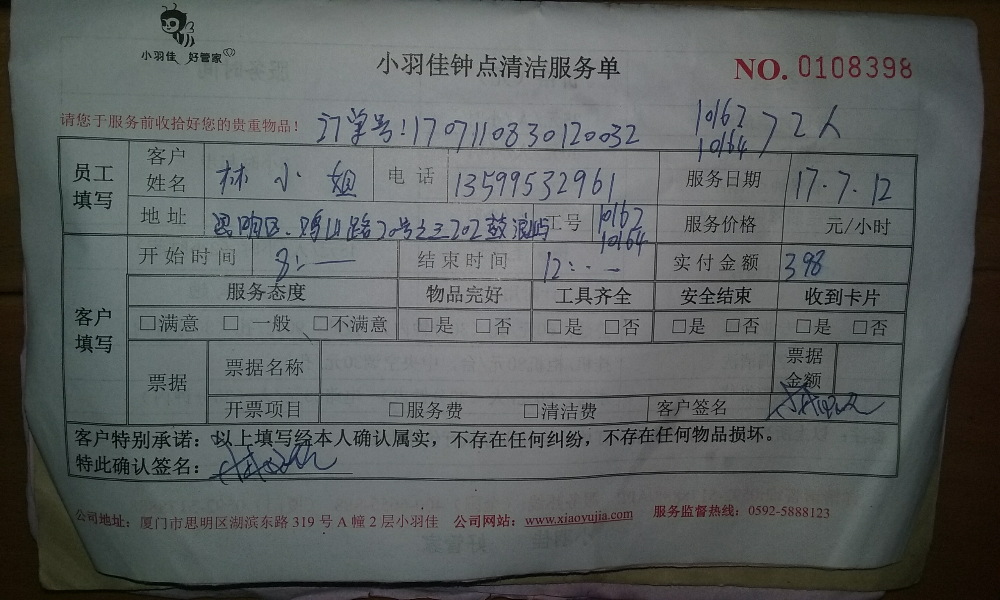 小羽佳 好管家
小羽佳钟点清洁服务单
NO. 0108398
请您于服务前收拾好您的贵重物品！
订单号：1707110830120032
10162
10164 > 2人
员工填写
客户姓名 林小姐 电话 13599532961 服务日期 17.7.12
地址 思明区.鸡山路20号之三202鼓浪屿 工号 10162 10164 服务价格 元/小时
客户填写
开始时间 8:— 结束时间 12:— 实付金额 398
服务态度 物品完好 工具齐全 安全结束 收到卡片
□满意 □一般 □不满意 □是 □否 □是 □否 □是 □否 □是 □否
票据 票据名称 票据金额
开票项目 □服务费 □清洁费 客户签名
客户特别承诺：以上填写经本人确认属实，不存在任何纠纷，不存在任何物品损坏。
特此确认签名：
公司地址：厦门市思明区湖滨东路 319 号 A 幢 2 层小羽佳 公司网站：www.xiaoyujia.com 服务监督热线：0592-5888123